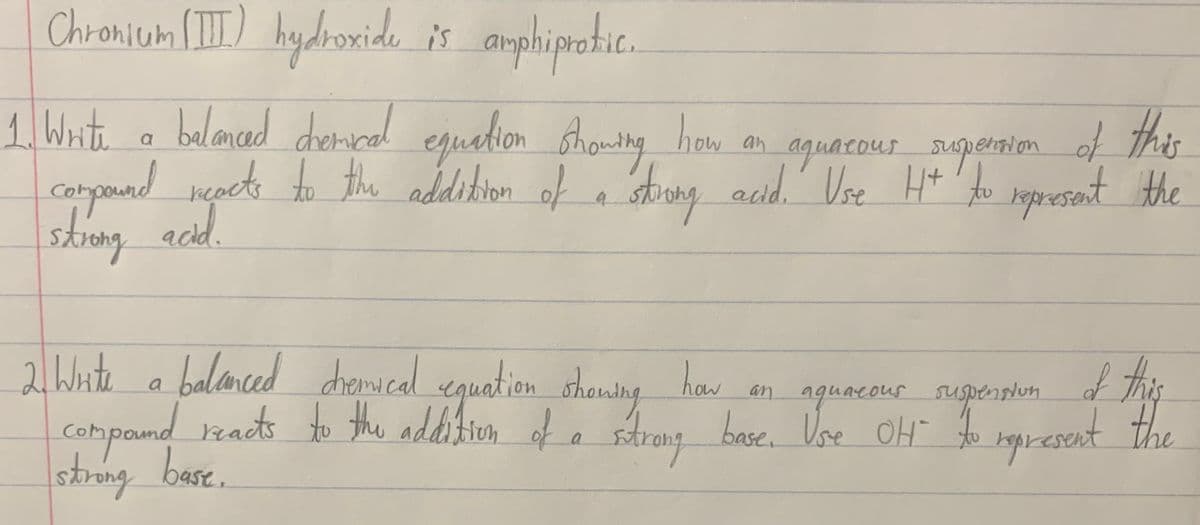 Chronium (III) hydroxide is amphiprotic.
1. Write a balanced chemical equation showing how an aquaeous suspension of this
compound reacts to the addition of a strong acid. Use H+ to represent the
strong acid.
2. Write a balanced chemical equation showing how an aquaeous suspension of this
compound reacts to the addition of a strong base. Use OH- to represent the
strong base.